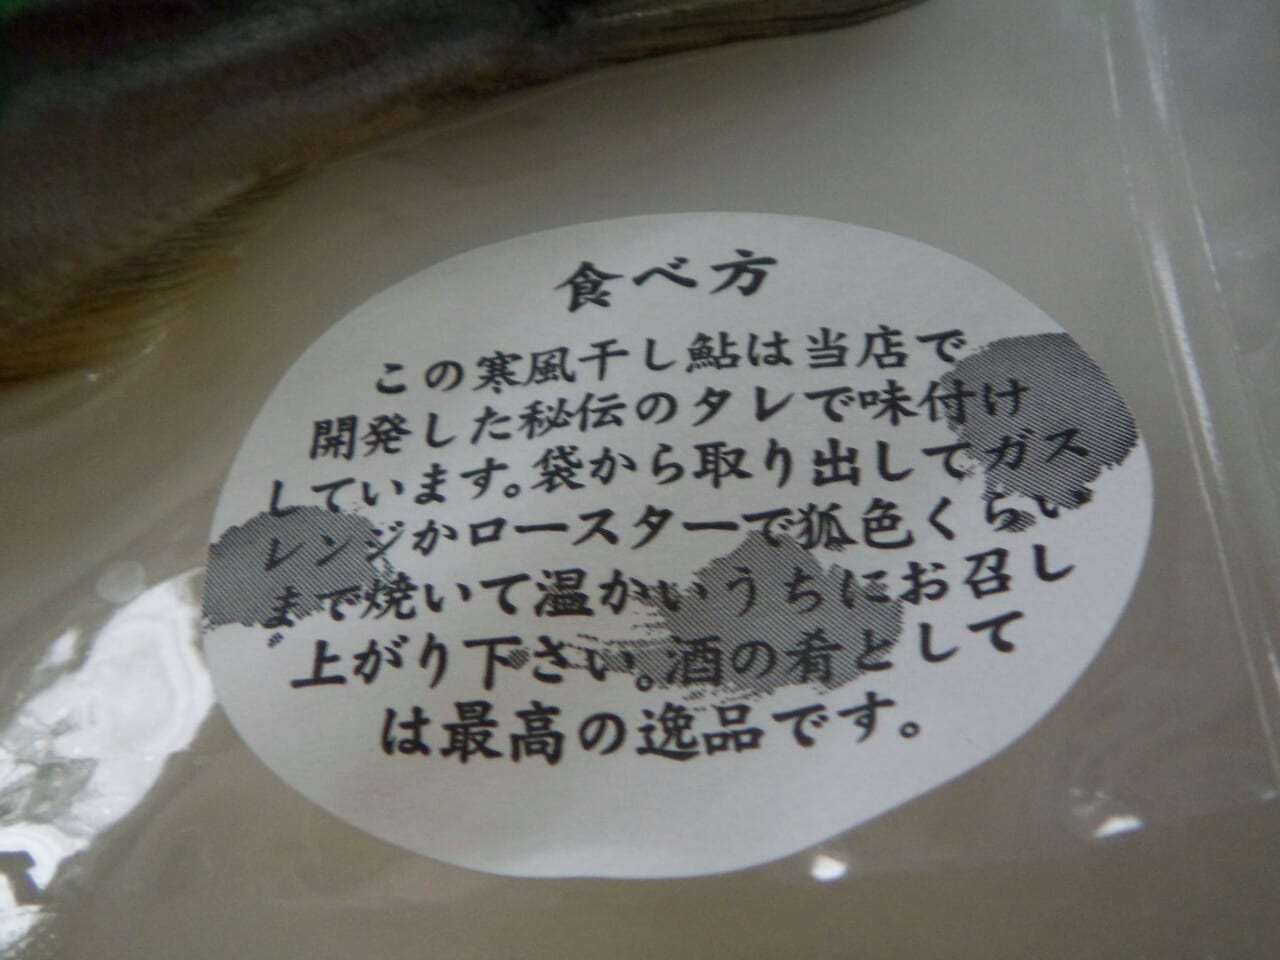 食べ方
この寒風干し鮎は当店で
開発した秘伝のタレで味付け
しています。袋から取り出してガス
レンジかロースターで狐色くらい
まで焼いて温かいうちにお召し
上がり下さい。酒の肴として
は最高の逸品です。